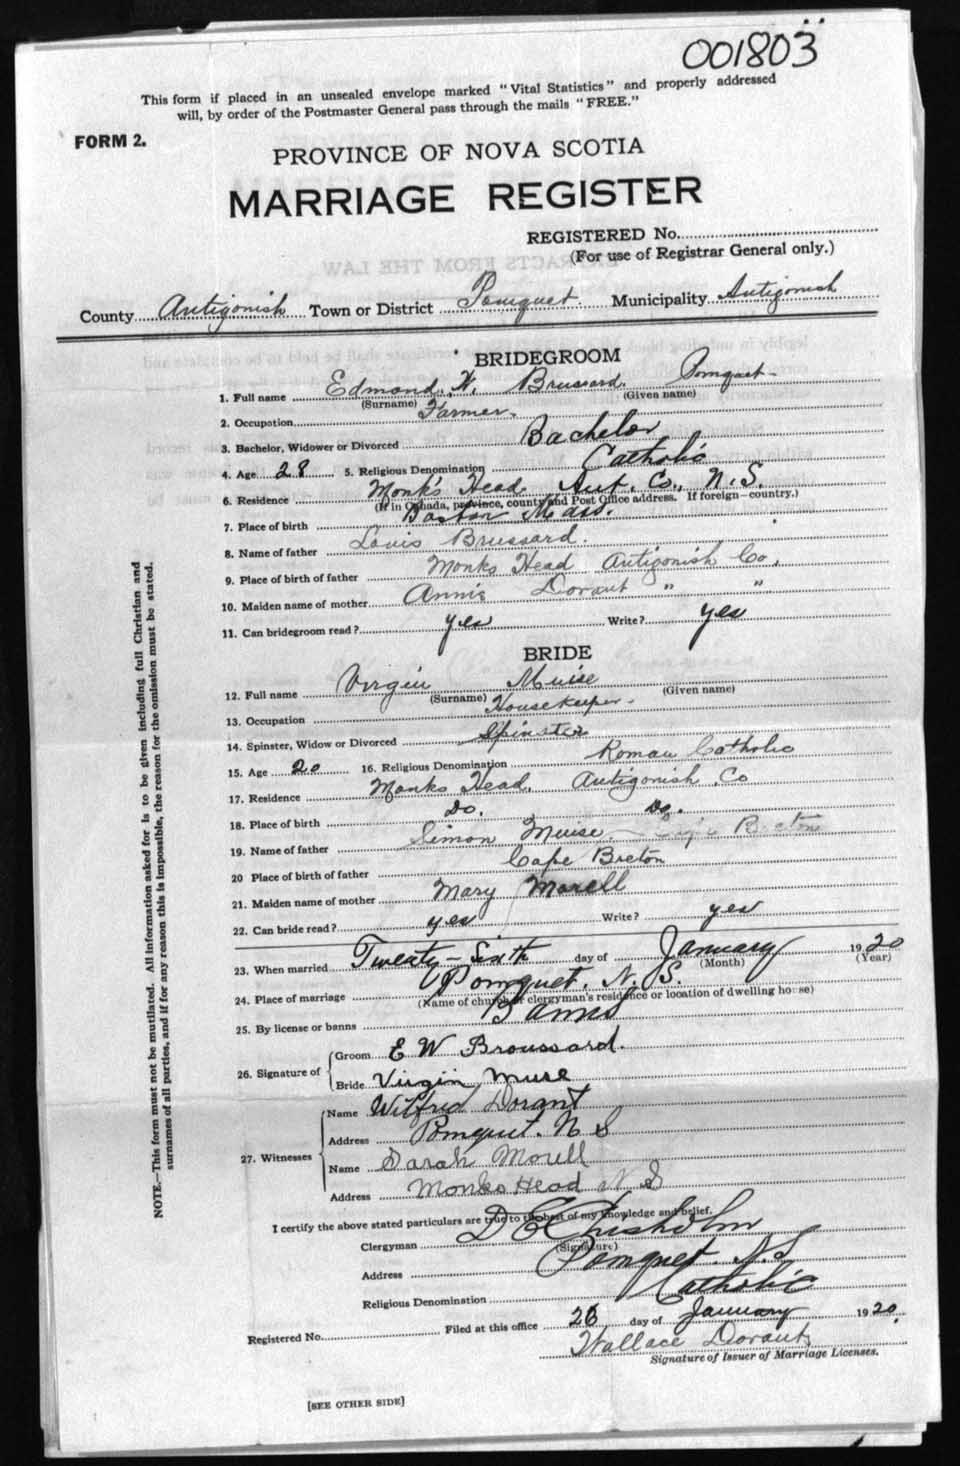 001803
This form if placed in an unsealed envelope marked "Vital Statistics" and properly addressed
will, by order of the Postmaster General pass through the mails "FREE."
FORM 2.
PROVINCE OF NOVA SCOTIA
MARRIAGE REGISTER
REGISTERED No.
(For use of Registrar General only.)
County Antigonish Town or District Pomquet Municipality Antigonish
BRIDEGROOM
1. Full name Edmond W. Brussard. Pomquet
(Surname) (Given name)
2. Occupation Farmer.
3. Bachelor, Widower or Divorced Bachelor
4. Age 28 5. Religious Denomination Catholic
6. Residence Monk's Head Ant. Co., N.S.
(If in Canada, province, county and Post Office address. If foreign—country.)
7. Place of birth Boston Mass.
8. Name of father Louis Brussard.
9. Place of birth of father Monks Head Antigonish Co.
10. Maiden name of mother Annie Dorant " "
11. Can bridegroom read? yes Write? yes
BRIDE
12. Full name Virgin Muise
(Surname) (Given name)
13. Occupation Housekeeper.
14. Spinster, Widow or Divorced Spinster
15. Age 20 16. Religious Denomination Roman Catholic
17. Residence Monks Head, Antigonish Co
18. Place of birth Do. Do.
19. Name of father Simon Muise Cape Breton
20 Place of birth of father Cape Breton
21. Maiden name of mother Mary Morell
22. Can bride read? yes Write? yes
23. When married Twenty-Sixth day of January 1920
(Month) (Year)
24. Place of marriage Pomquet, N. S.
(Name of church or clergyman's residence or location of dwelling house)
25. By license or banns Banns
26. Signature of Groom E W Broussard.
Bride Virgin Muse
27. Witnesses Name Wilfred Dorant
Address Pomquet. N S
Name Sarah Morell
Address Monks Head N S
I certify the above stated particulars are true to the best of my knowledge and belief.
Clergyman D E Chisholm
(Signature)
Address Pomquet. N.S
Religious Denomination Catholic
Registered No. Filed at this office 26 day of January 1920.
Wallace Dorant
Signature of Issuer of Marriage Licenses.
[SEE OTHER SIDE]
NOTE.—This form must not be mutilated. All information asked for is to be given including full Christian and
surnames of all parties, and if for any reason this is impossible, the reason for the omission must be stated.